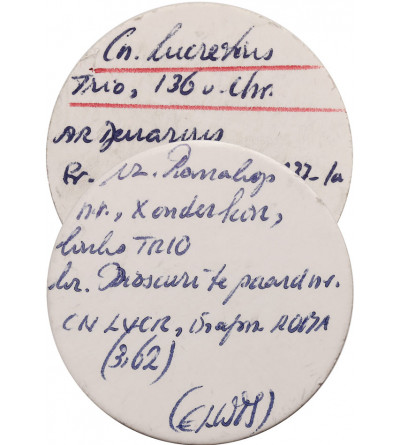 Cn. Lucretius
Trio, 136 v. Chr.
AR Denarius
Cr. 237-1a
Vz. Romakop
n.r., X onder kin,
links TRIO
kz. Dioscuri te paard n.r.
CN LVCR, in afsn. ROMA
(3,62)